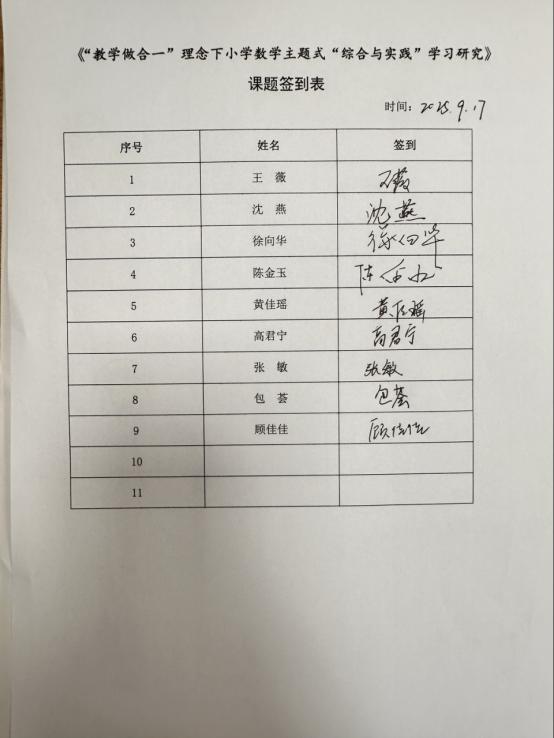 《“教学做合一”理念下小学数学主题式“综合与实践”学习研究》
课题签到表
时间：2025.9.17
序号 姓名 签到
1 王 薇 王薇
2 沈 燕 沈燕
3 徐向华 徐向华
4 陈金玉 陈金玉
5 黄佳瑶 黄佳瑶
6 高君宁 高君宁
7 张 敏 张敏
8 包 荟 包荟
9 顾佳佳 顾佳佳
10
11